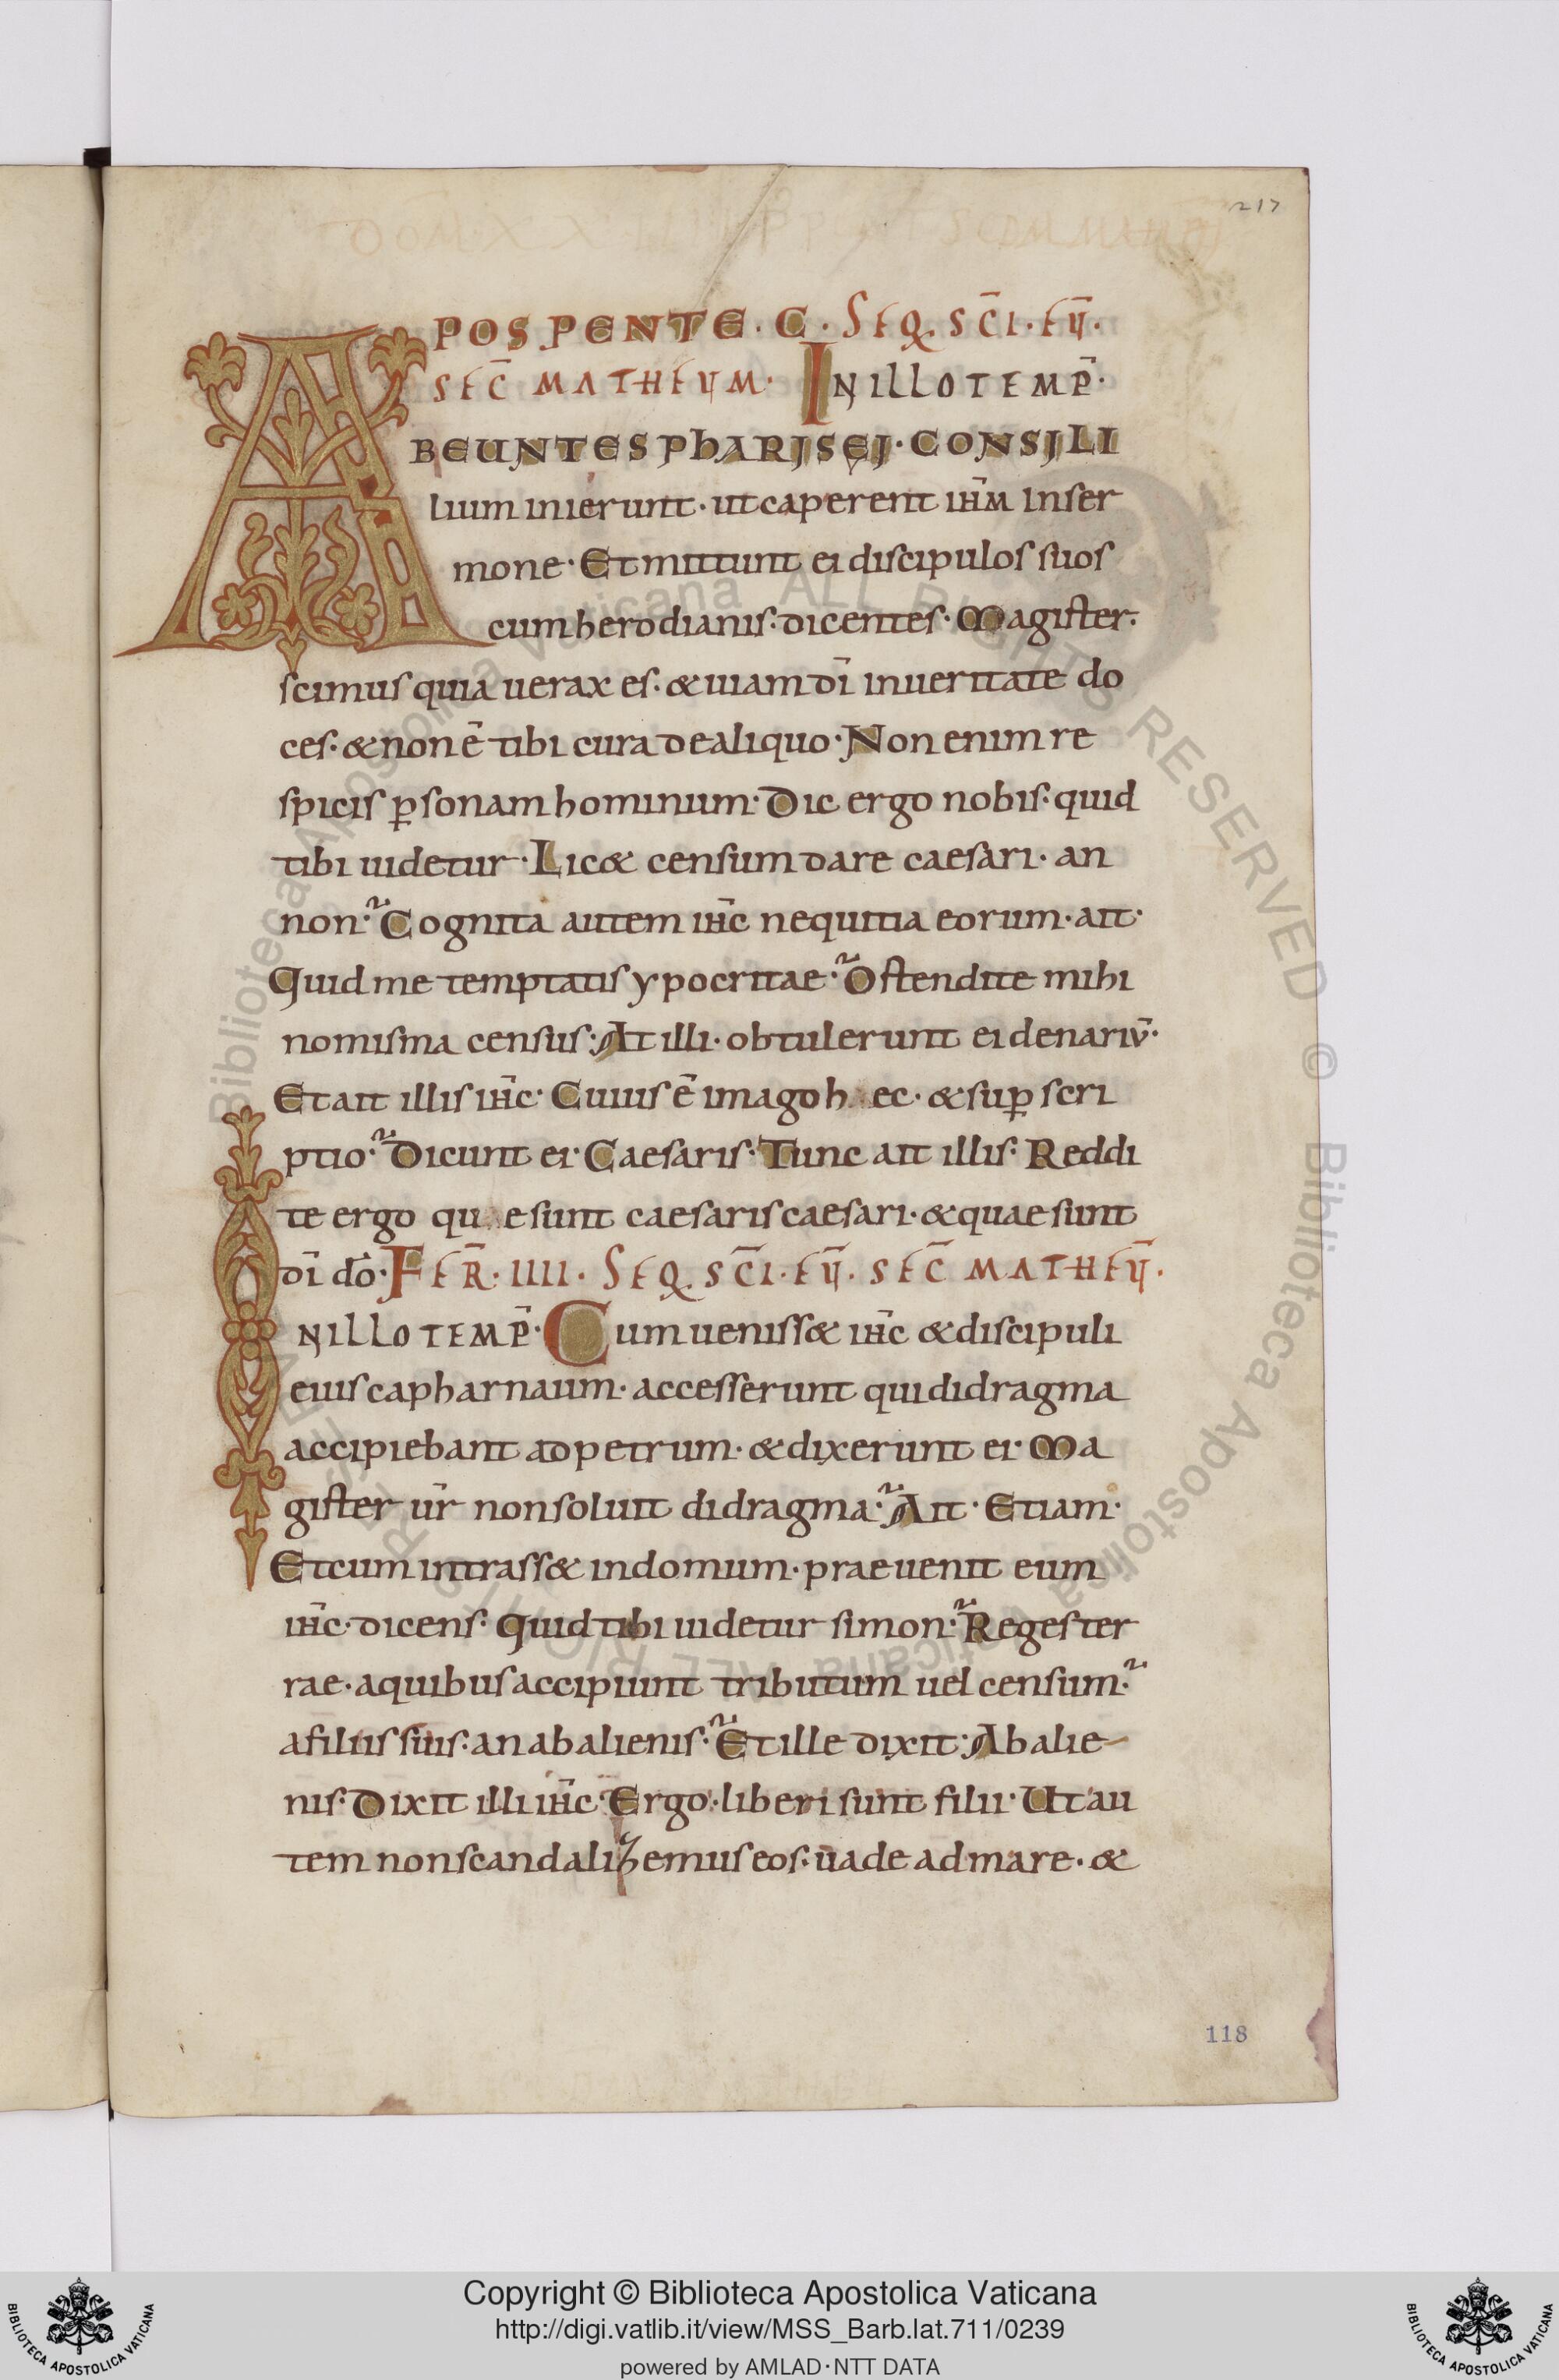 217
POS PENTE·C· SEQ. SC̄I·EṼ·
SEC̄ MATHEUM· IN ILLO TEMP̄·
ABEUNTES PHARISEI· CONSILI
lium inierunt· ut caperent ih̄m in ser
mone· Et mittunt ei discipulos suos
cum herodianis· dicentes· Magister·
scimus quia uerax es· & uiam dī in ueritate do
ces· & non ē tibi cura de aliquo· Non enim re
spicis p̱sonam hominum· Dic ergo nobis· quid
tibi uidetur· Lic& censum dare caesari· an
non· Cognita autem ih̄c nequitia eorum· ait·
Quid me temptatis ypocritae· Ostendite mihi
nomisma census· At illi· obtulerunt ei denariū·
Et ait illis ih̄c· Cuius ē imago h ec· & sup̱ scri
ptio· Dicunt ei· Caesaris· Tunc ait illis· Reddi
te ergo qu e sunt caesaris caesari· & quae sunt
dī dō· FER̄· IIII· SEQ. SC̄I·EŪ· SEC̄ MATHEŪ·
IN ILLO TEMP̄· Cum ueniss& ih̄c & discipuli
eius capharnaum· accesserunt qui didragma
accipiebant ad petrum· & dixerunt ei· Ma
gister ur̄ non soluit didragma· Ait· Etiam·
Et cum intrass& in domum· praeuenit eum
ih̄c· dicens· Quid tibi uidetur simon· Reges ter
rae· a quibus accipiunt tributum uel censum·
a filiis suis· an ab alienis· Et ille dixit· Ab alie-
nis· Dixit illi ih̄c· Ergo· liberi sunt filii· Ut au
tem non scandalizemus eos· uade ad mare· &
118
Biblioteca Apostolica Vaticana ALL RIGHTS RESERVED © Biblioteca Apostolica Vaticana ALL RIGHTS RESERVED
Copyright © Biblioteca Apostolica Vaticana
http://digi.vatlib.it/view/MSS_Barb.lat.711/0239
powered by AMLAD·NTT DATA
BIBLIOTECA APOSTOLICA VATICANA
BIBLIOTECA APOSTOLICA VATICANA